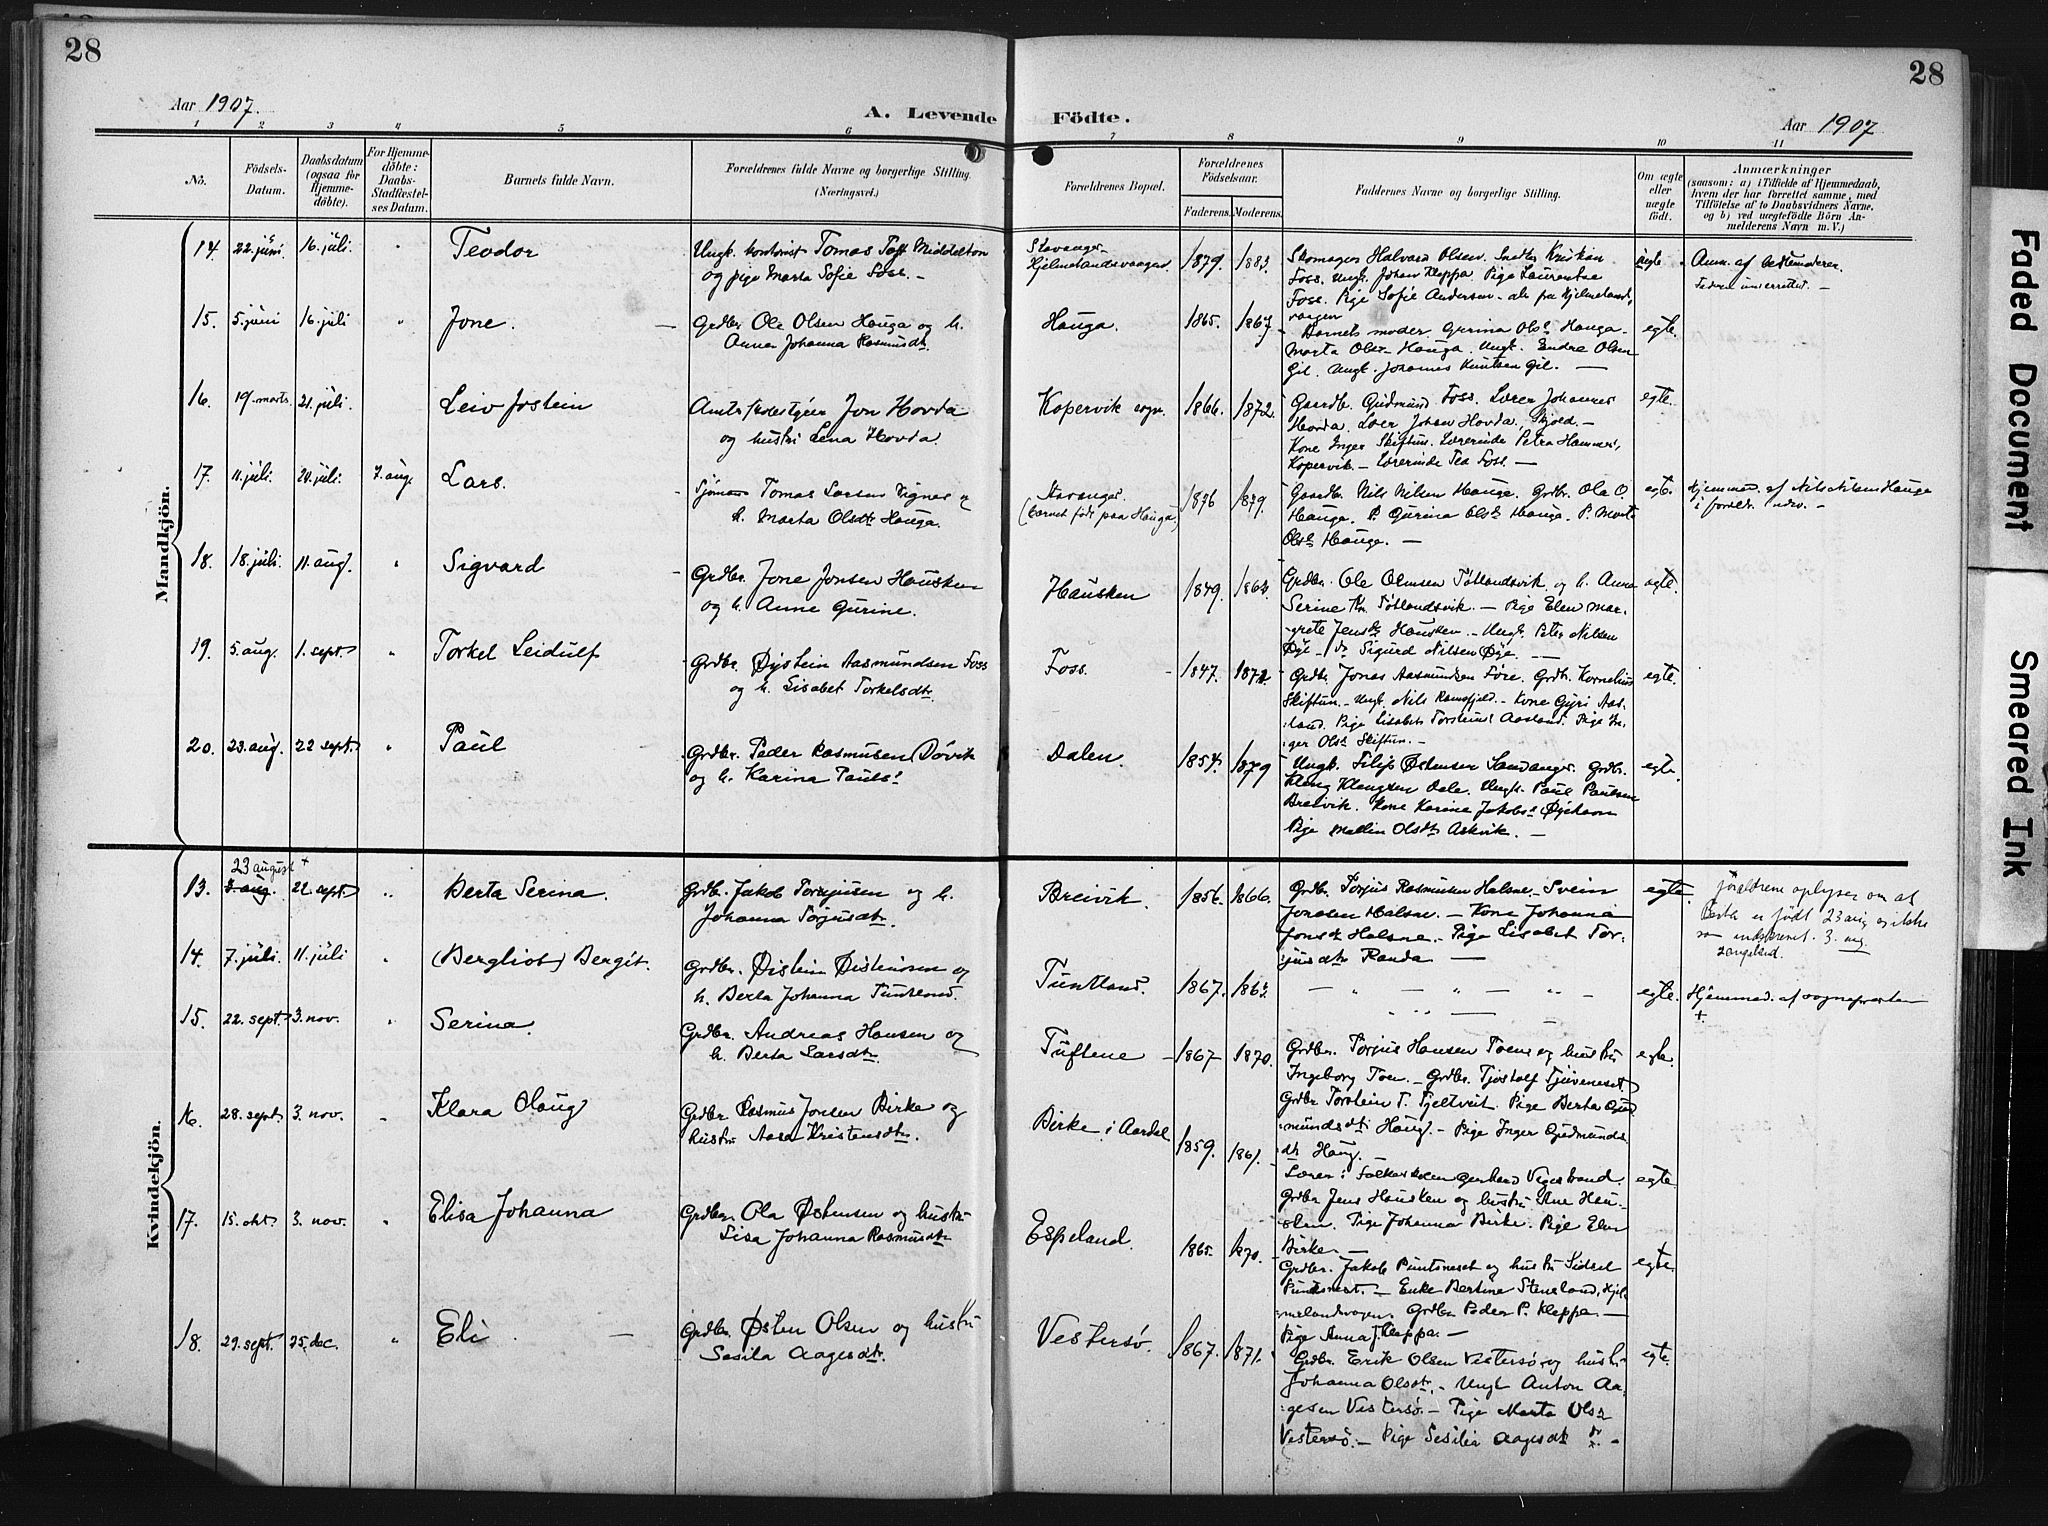 28
28
Aar 1907.
A. Levende
Födte.
Aar 1907
1 2 3 4 5 6 7 8 9 10 11
No.
Födsels-
Datum.
Daabsdatum
(ogsaa for
Hjemme-
döbte).
For Hjemme-
döbte:
Daabs-
Stadfæstel-
ses Datum.
Barnets fulde Navn.
Forældrenes fulde Navne og borgerlige Stilling.
(Næringsvei.)
Forældrenes Bopæl.
Forældrenes
Födselsaar.
Faderens. Moderens.
Faddernes Navne og borgerlige Stilling.
Om ægte
eller
uægte
födt.
Anmærkninger
(saasom: a) i Tilfælde af Hjemmedaab,
hvem der har forrettet samme, med
Tilföielse af to Daabsvidners Navne.
og b) ved uægtefödte Börn An-
melderens Navn m. V.)
Mandkjön.
14. 22. juni 16. juli " Teodor
Ungk. Tomas Toft Middelton
og pige Marta Sofie Foss.
Stavanger
Hjelmelandsvaagen
1879. 1883.
Skomager Halvard Olsen. Snedk. Kristian
Foss. Ungk. Johan Kleppa. Pige Laurentse
Foss. Pige Sofie Andersen - alle fra Hjelmelands
vaagen
uegte
Anm. af bestemoderen.
Faderen underrettet. -
15. 5. juni 16. juli " Jone.
Grdbr. Ole Olsen Hauga og h.
Anna Johanna Rasmusdtr.
Hauga. 1865. 1867.
Barnets moder Gurina Olsd. Hauga -
Marta Olsd. Hauga. Ungk. Endre Olsen
Gil. Ungk. Johannes Knutsen Gil. -
egte.
16. 19. marts. 21. juli. Leiv Jostein
Amtsskolestyrer Jon Hovda
og hustri Lena Hovda.
Kopervik sogn. 1866. 1872.
Gaardb. Gudmund Foss. Lærer Johannes
Hovda. Lærer Johan Hovda, Skjold. -
Kone Inger Skiftun. Lærerinde Petra Hammer,
Kopervik. - Lærerinde Tea Foss. -
egte.
17. 11. juli. 20. juli. 7. aug. Lars.
Sjømand Tomas Larsen Vignes og
h. Marta Olsdtr. Hauga.
Stavanger.
(barnet født paa Hauga)
1876 1879.
Gaardb. Nils Nilsen Hauge. Grdbr. Ola O.
Hauga. P. Gurina Olsd. Hauga. P. Marta
Olsd. Hauge. -
egte.
Hjemmed. af Nils Nilsen Hauge
i foreldr. ndrv. -
18. 18. juli. 11. aug. " Sigvard
Grdbr. Jone Jonsen Hausken
og h. Anne Gurine.
Hausken 1849. 1864.
Grdbr. Ole Olmsen Tøtlandsvik og h. Anna
Serine Kn. Tøtlandsvik. - Pige Elen Mar-
grete Jensdtr. Hausken. - Ungk. Peter Nilsen
Øye - do Sigurd Nilsen Øye. -
egte.
19. 5. aug. 1. sept. " Torkel Leidulf
Grdbr. Øystein Aasmundsen Foss
og h. Lisabet Torkelsdtr.
Foss. 1847. 1872.
Grdbr. Jonas Aasmundsen Føre. Grdbr. Kornelius
Skiftun. - Ungk. Nils Ramsfjeld. - Kone Gyri Aas-
land. Pige Lisabet Torsteins. Aasland. Pige In-
ger Olsd. Skiftun. -
egte.
20. 23. aug. 22 sept. " Paul
Grdbr. Peder Rasmusen Døvik
og h. Karina Pauls.
Dalen. 1854. 1879
Ungk. Filip Østensen Sandanger. Grdbr.
Kleng Klengsen Dale. Ungk. Paul Paulsen
Breivik. Kone Karine Jakobsd. Øyehavn
Pige Mallin Olsdtr. Askvik. -
egte.
Kvindekjön.
23 august +
13. 3. aug. 22. sept. " Berta Serina.
Grdb. Jakob Torjusen og h.
Johanna Torjusdtr.
Breivik. 1856. 1866.
Grdbr. Torjus Rasmusen Halsne. - Svein
Jonasen Halsne. - Kone Johanna
Jonsdtr. Halsne. - Pige Lisabet Tor-
jusdtr. Randa -
egte.
Foreldrene oplyser om at
Berta er født 23 aug og ikke
som indskrevet 3. aug.
14. 7. juli. 11. juli " (Bergliot) Bergit.
Grdbr. Øistein Øisteinsen og
h. Berta Johanna Tuntland.
Tuntland. 1867. 1863.
egte.
Hjemmed. af sognepresten
+.
15. 22. sept. 3. nov. " Serina.
Grdbr. Andreas Hansen og
h. Berta Larsdtr.
Tuftene 1867 1870.
Grdbr. Torjus Hansen Toen og hustru
Ingeborg Toen. - Grdbr. Tjostolf Tjuveneset
Grdbr. Torstein T. Tjeltveit. Pige Berta Gud
mundsdtr. Haug. - Pige Inger Gudmunds
dtr. Haug.
egte.
16. 28. sept. 3. nov. " Klara Olaug
Grdbr. Rasmus Jonsen Birke og
hustru Aasa Kristensdtr.
Birke i Aardal 1859. 1861.
Lærer i Folkeskolen Gerhard Vigestrand.
Grdbr. Jens Hausken og hustru Ane Hau-
sken. Pige Johanna Birke. Pige Elen
Birke. -
egte.
17. 15. okt. 3. nov. " Elisa Johanna
Grdbr. Ola Østensen og hustru
Lisa Johanna Rasmusdtr.
Espeland. 1865. 1870.
Grdbr. Jakob Puntsneset og hustru Sidsel
Puntsneset. - Enke Bertine Steneland, Hjel
melandvagen. Grdbr. Peder P. Kleppa. -
Pige Anna J. Kleppa. -
egte.
18. 29. sept. 25. dec. " Eli. -
Grdbr. Østen Olsen og hustru
Sesilia Aagesdtr.
Vestersø. 1867. 1871.
Grdbr. Erik Olsen Vestersø og hustr.
Johanna Olsdtr. - Ungk Anton Aa-
gesen Vestersø. - Pige Marta Olsd.
Vestersø. - Pige Sesilia Aagesdtr. do -
egte.
Faded Document
Smeared Ink